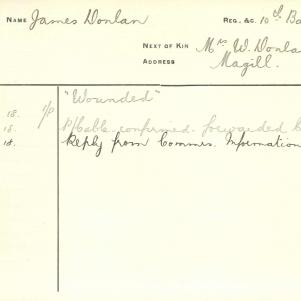 NAME James Donlan REG. &C. 10th Ba
NEXT OF KIN Mrs W. Donla
ADDRESS Magill.
"Wounded"
18. P/Cable confirmed. forwarded
18. Reply from Commrs. Information